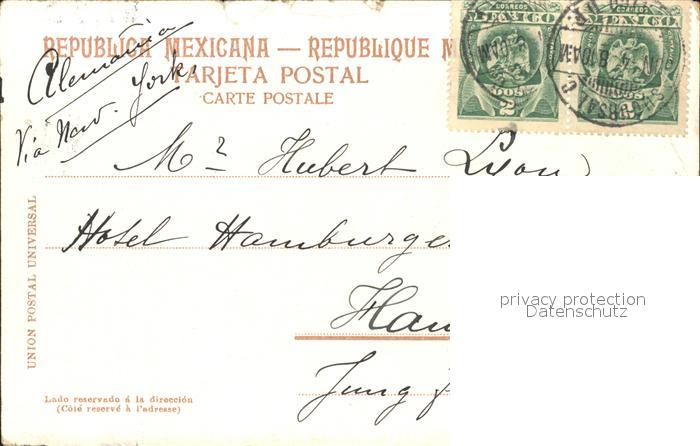 REPUBLICA MEXICANA — REPUBLIQUE M
TARJETA POSTAL
CARTE POSTALE
CORREOS MEXICO
CORREOS MEXICO
DOS 2
Alemania
Via New. York.
Mr Hubert Lyon
Hotel Hamburge
Ham
Jung
UNION POSTAL UNIVERSAL
privacy protection
Datenschutz
Lado reservado á la dirección
(Côté reservé à l'adresse)